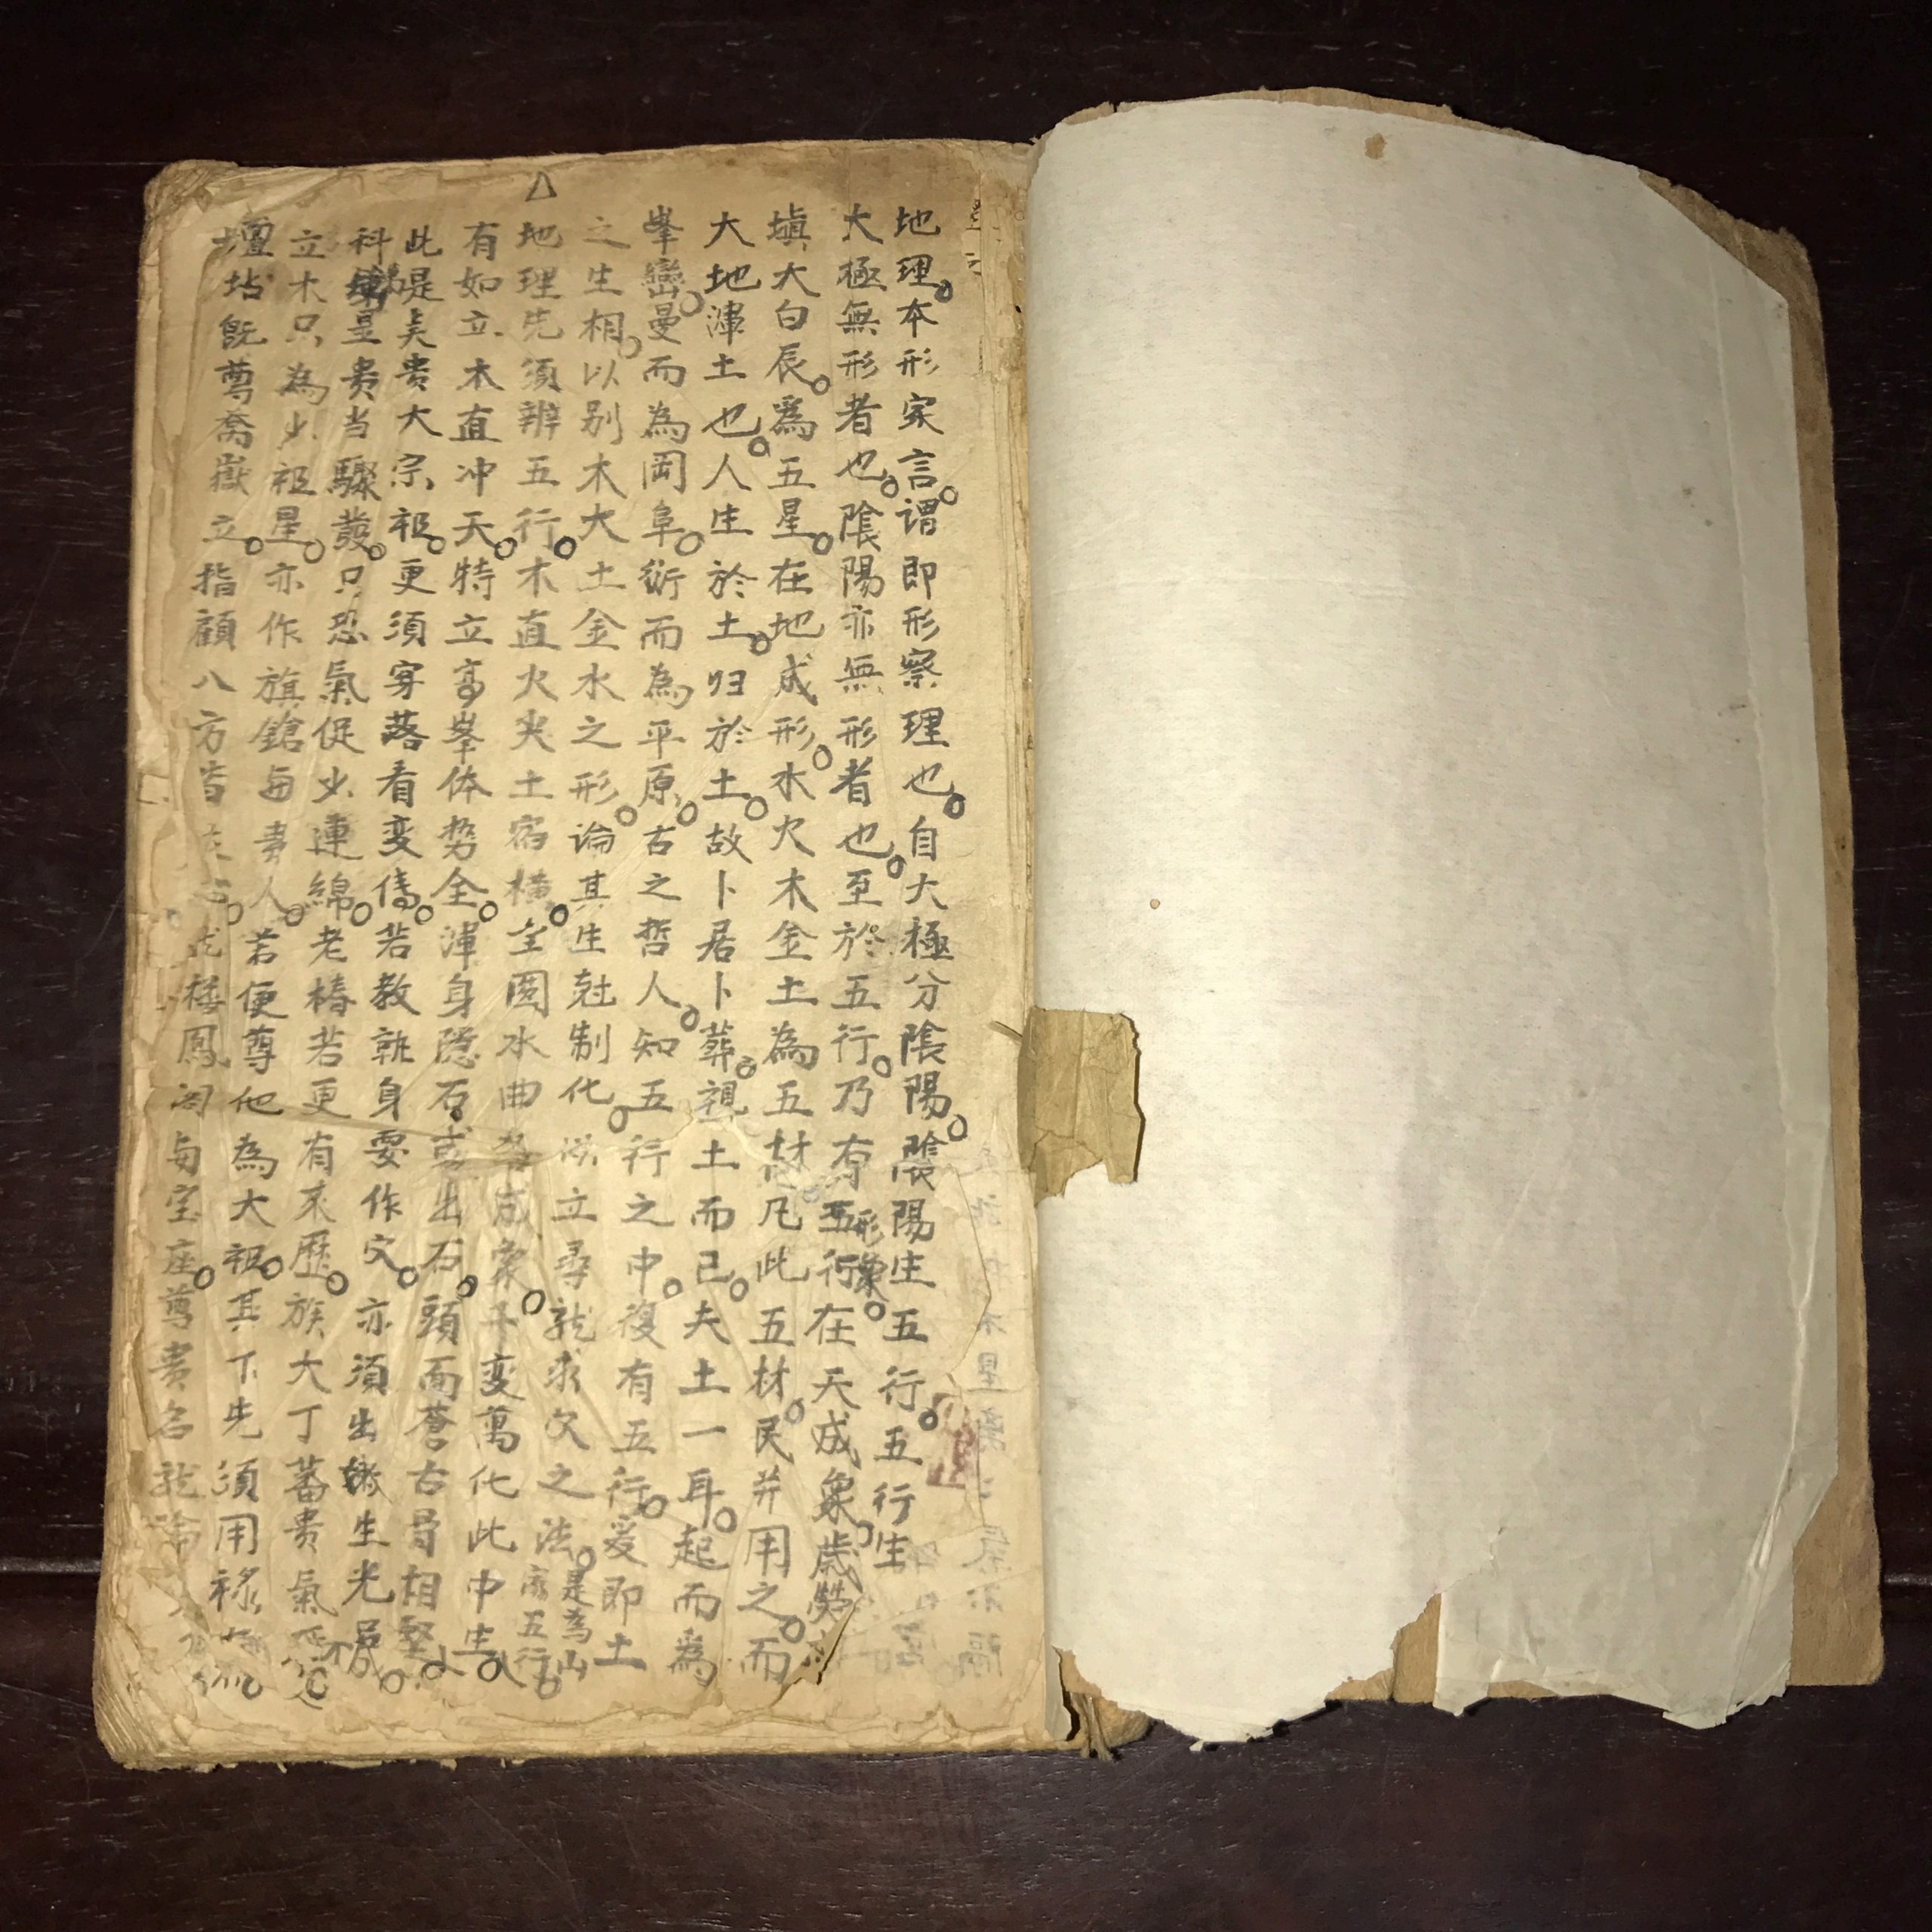 地理。本形家言。謂即形察理也。自大極分陰陽。陰陽生五行。五行生
大極無形者也。陰陽亦無形者也。至於五行。乃有五行形象。在天成象。歲熒
填大白辰。爲五星。在地成形。水火木金土為五材。凡此五材。民并用之。而
大地渾土也。人生於土。归於土。故卜居卜葬。視土而已。夫土一耳。起而為
峯巒。曼而為岡阜。衍而為平原。古之哲人。知五行之中。復有五行。爰即土
之生相。以别木火土金水之形。論其生尅制化。以立尋龍求穴之法。是為山家五行。
地理先須辨五行。木直火尖土宿横。金圓水曲各成象。千変萬化此中生。
有如立木直冲天。特立高峯体势全。渾身隐石或出石。頭面蒼古骨相堅。
此是矣貴大宗祖。更須穿落看変傳。若教孰身要作穴。亦須出嫩生光
科甲星貴当驟發。只恐氣促少連綿。老椿若更有来歷。族大丁蕃貴氣
立木只為少祖星。亦作旗鎗每貴人。若便尊他為大祖。其下先須用祿
壇坫既尊喬嶽立。指顧八方皆 楼鳳阁每宝座。尊貴名龍